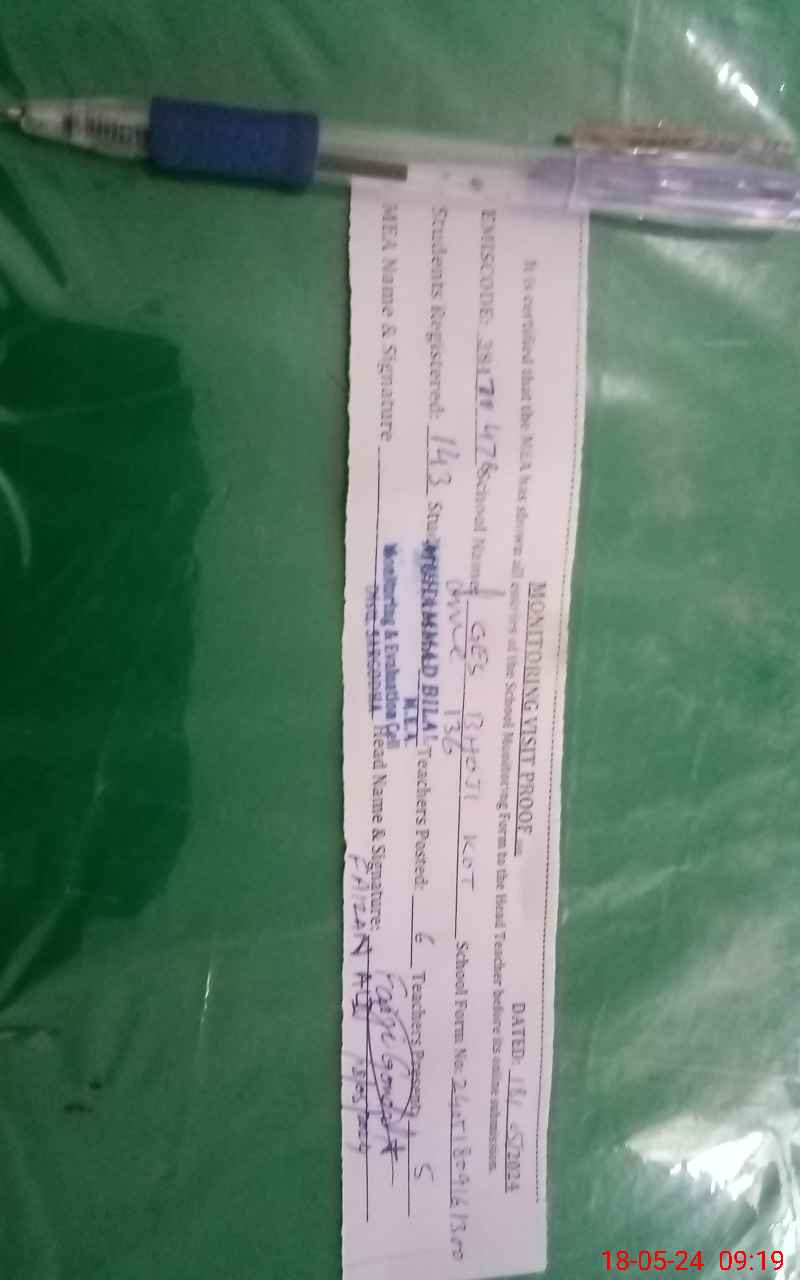 MONITORING VISIT PROOF
DATED: 18/ 05/2024
It is certified that the MEA has shown all entries of the School Monitoring Form to the Head Teacher before its online submission.
EMISCODE: School Name GES BHOJI KOT School Form No:
Students Registered: 143 Stud 136 Teachers Posted: 6 Teachers Present 5
MUHAMMAD BILAL
M.E.A
Monitoring & Evaluation Cell
SARGODHA
MEA Name & Signature Head Name & Signature:
FAIZAN ALI
18/05/2024
18-05-24 09:19